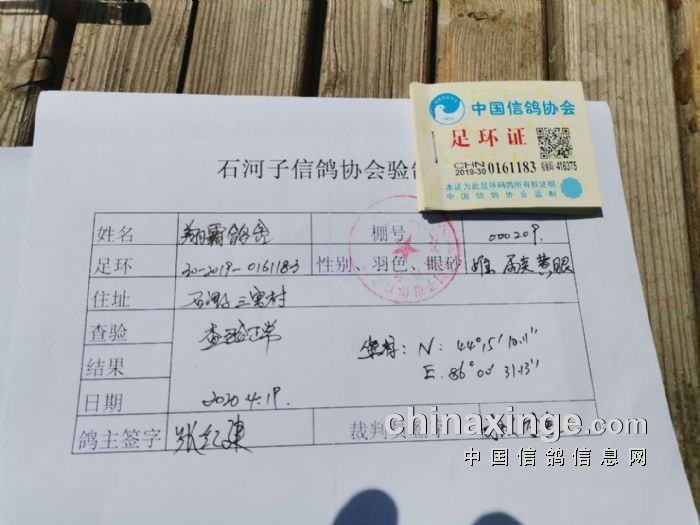 中国信鸽协会
足环证
CHN
2019-30 0161183 验证码 416375
本证为此足环码鸽所有权证明
中国信鸽协会监制
石河子信鸽协会验鸽
姓名 翔霸鸽舍 棚号 000209
足环 30-2019-0161183 性别、羽色、眼砂 雌 灰 黄眼
住址 石河子三宫村
查验 查验正常
结果 坐标: N: 44°15′10.11″
E: 86°00′31.13″
日期 2020.4.19.
鸽主签字 张红建 裁判员
chinaxinge.com
中国信鸽信息网